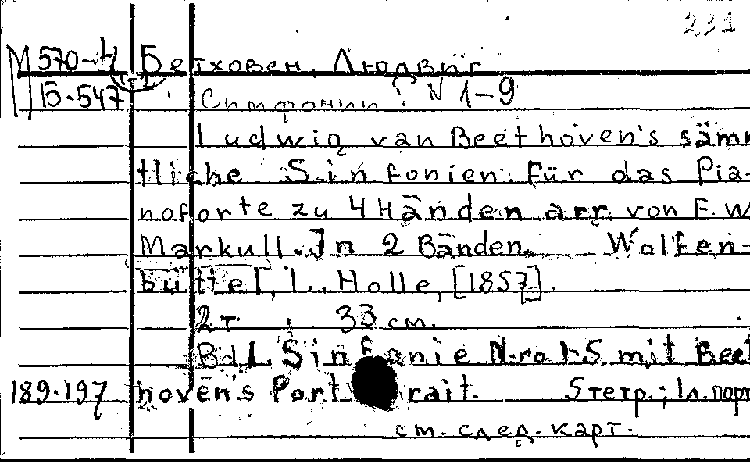 231
М 570-4 Бетховен, Людвиг
Б-547 Симфонии. N 1-9
Ludwig van Beethoven's säm
tliche Sinfonien für das Pia-
noforte zu 4 Händen arr. von F. W.
Markull. In 2 Bänden. Wolfen-
büttel, L. Holle, [1857].
2 т. 33 см.
Bd I. Sinfonie N-ro 1-5 mit Beet
189-197 hoven's Portrait. 5 тетр.; 1 л. порт
см. след. карт.